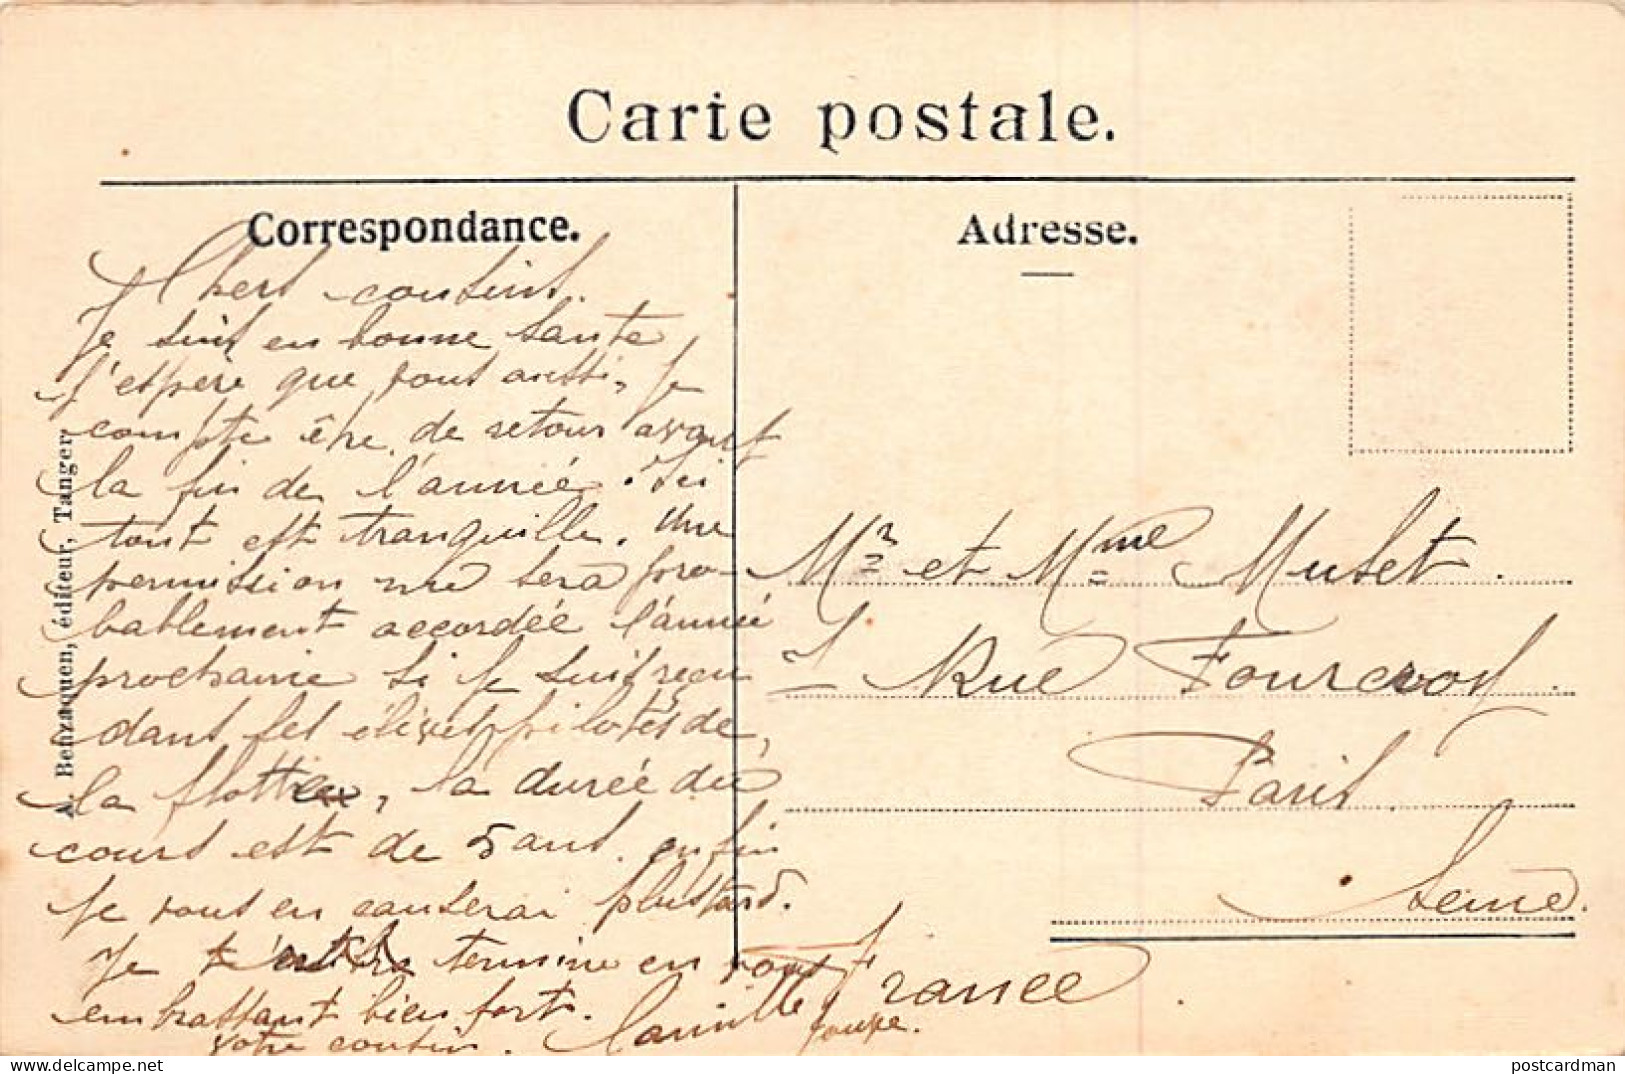 Carte postale.
Correspondance.
Chers cousins.
Je suis en bonne sante
j'espère que vous aussi, Je
compte être de retour avant
la fin de l'année. Ici
tout est tranquille. Une
permission me sera pro-
bablement accordée l'année
prochaine si je suis reçu
dans les élèves pilotes de
la flotte, la durée du
cours est de 5 ans. enfin
je vous en causerai plus tard.
Je termine en vous
embrassant bien fort.
votre cousin. Camille
A. Benzaquen, éditeur, Tanger.
Adresse.
Mr et Mme Muset.
Rue Fourcroy.
Paris.
Seine.
France.
postcardman